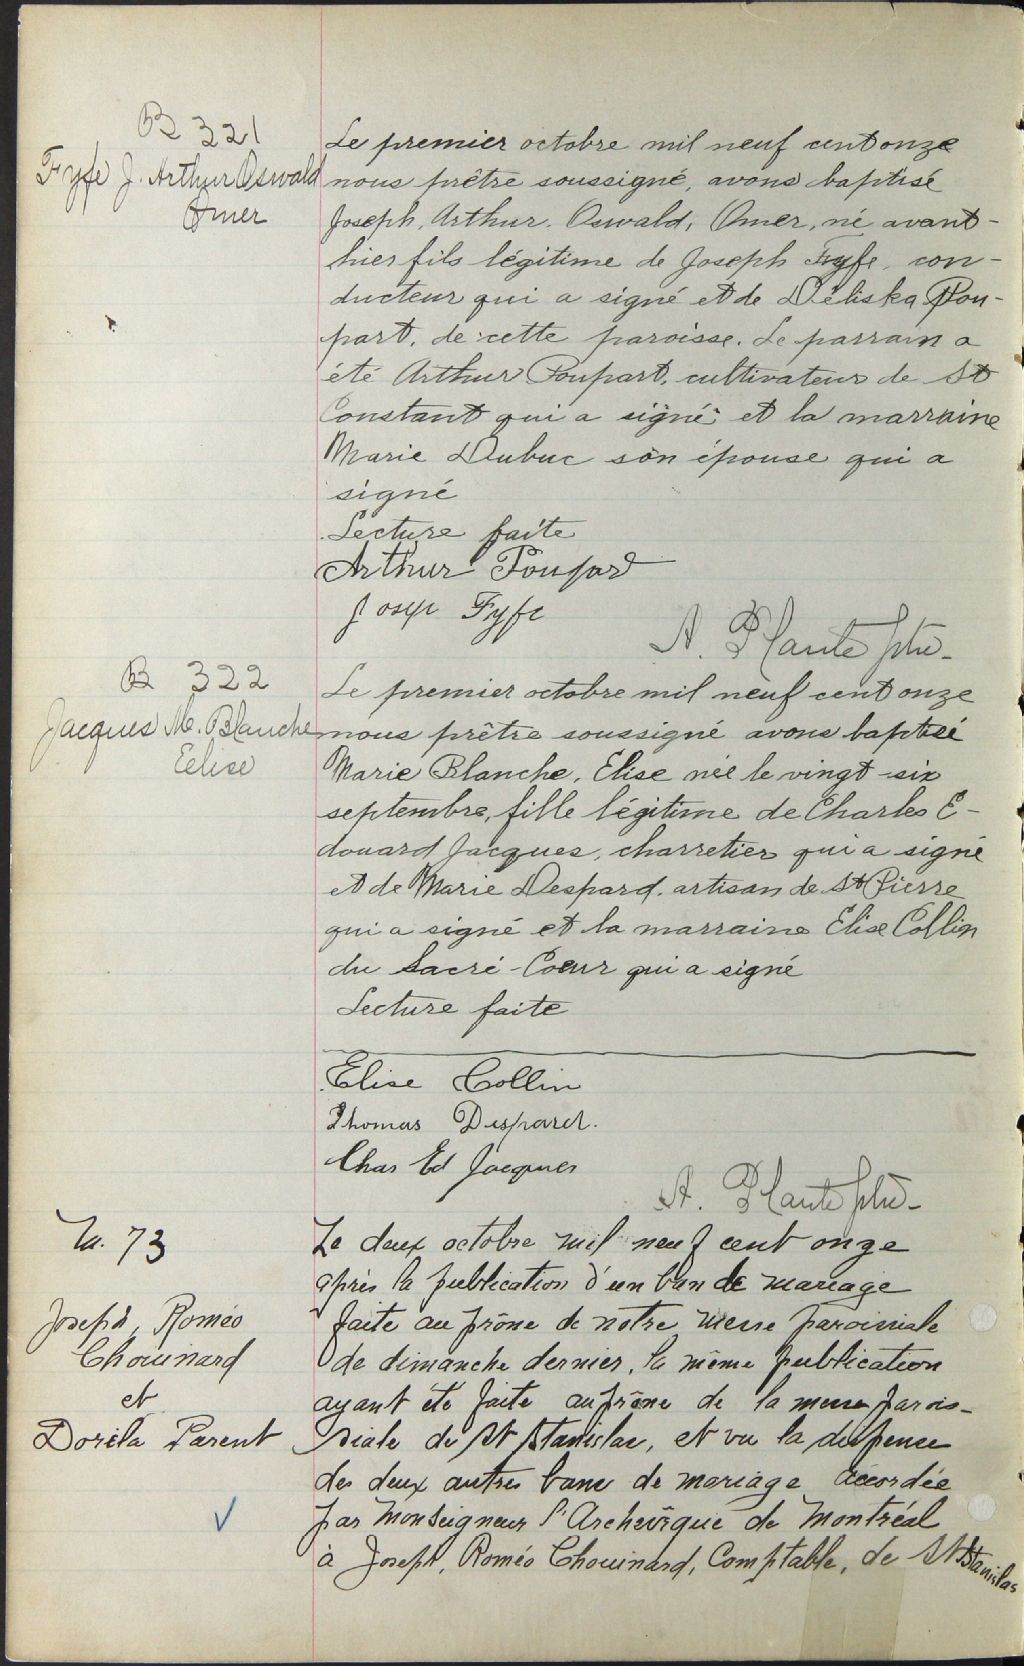 B 321
Fyfe J. Arthur Oswald
Omer
Le premier octobre mil neuf cent onze
nous prêtre soussigné, avons baptisé
Joseph, Arthur. Oswald, Omer, né avant-
hier fils légitime de Joseph Fyfe, con-
ducteur qui a signé et de Déliska Pou-
part, de cette paroisse. Le parrain a
été Arthur Poupart, cultivateur de St
Constant qui a signé et la marraine
Marie Dubuc son épouse qui a
signé
Lecture faite
Arthur Poupart
Josep Fyfe
A. Plante ptre.
B 322
Jacques M. Blanche
Eelise
Le premier octobre mil neuf cent onze
nous prêtre soussigné avons baptisé
Marie Blanche, Elise née le vingt-six
septembre, fille légitime de Charles E-
douard Jacques, charretier qui a signé
et de Marie Despard. artisan de St Pierre
qui a signé et la marraine Elise Collin
du Sacré-Coeur qui a signé
Lecture faite
Elise Collin
Thomas Despard.
Chas Ed Jacques
A. Plante ptre.
M. 73
Joseph, Roméo
Chouinard
et
Doréla Parent
Le deux octobre mil neuf cent onze
après la publication d'un ban de mariage
faite au prône de notre messe paroissiale
de dimanche dernier, la même publication
ayant été faite au prône de la messe parois-
siale de St Stanislas, et vu la dispense
des deux autres bans de mariage accordée
par Monseigneur l'Archevêque de Montréal
à Joseph, Roméo Chouinard, Comptable, de St Stanislas